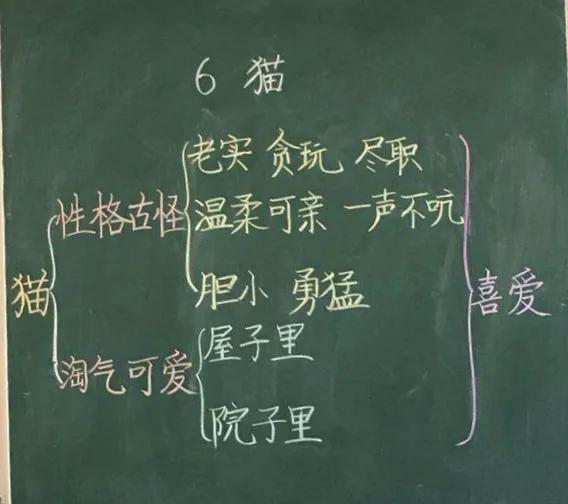 6 猫
老实 贪玩 尽职
性格古怪
温柔可亲 一声不吭
猫
胆小 勇猛
喜爱
淘气可爱
屋子里
院子里